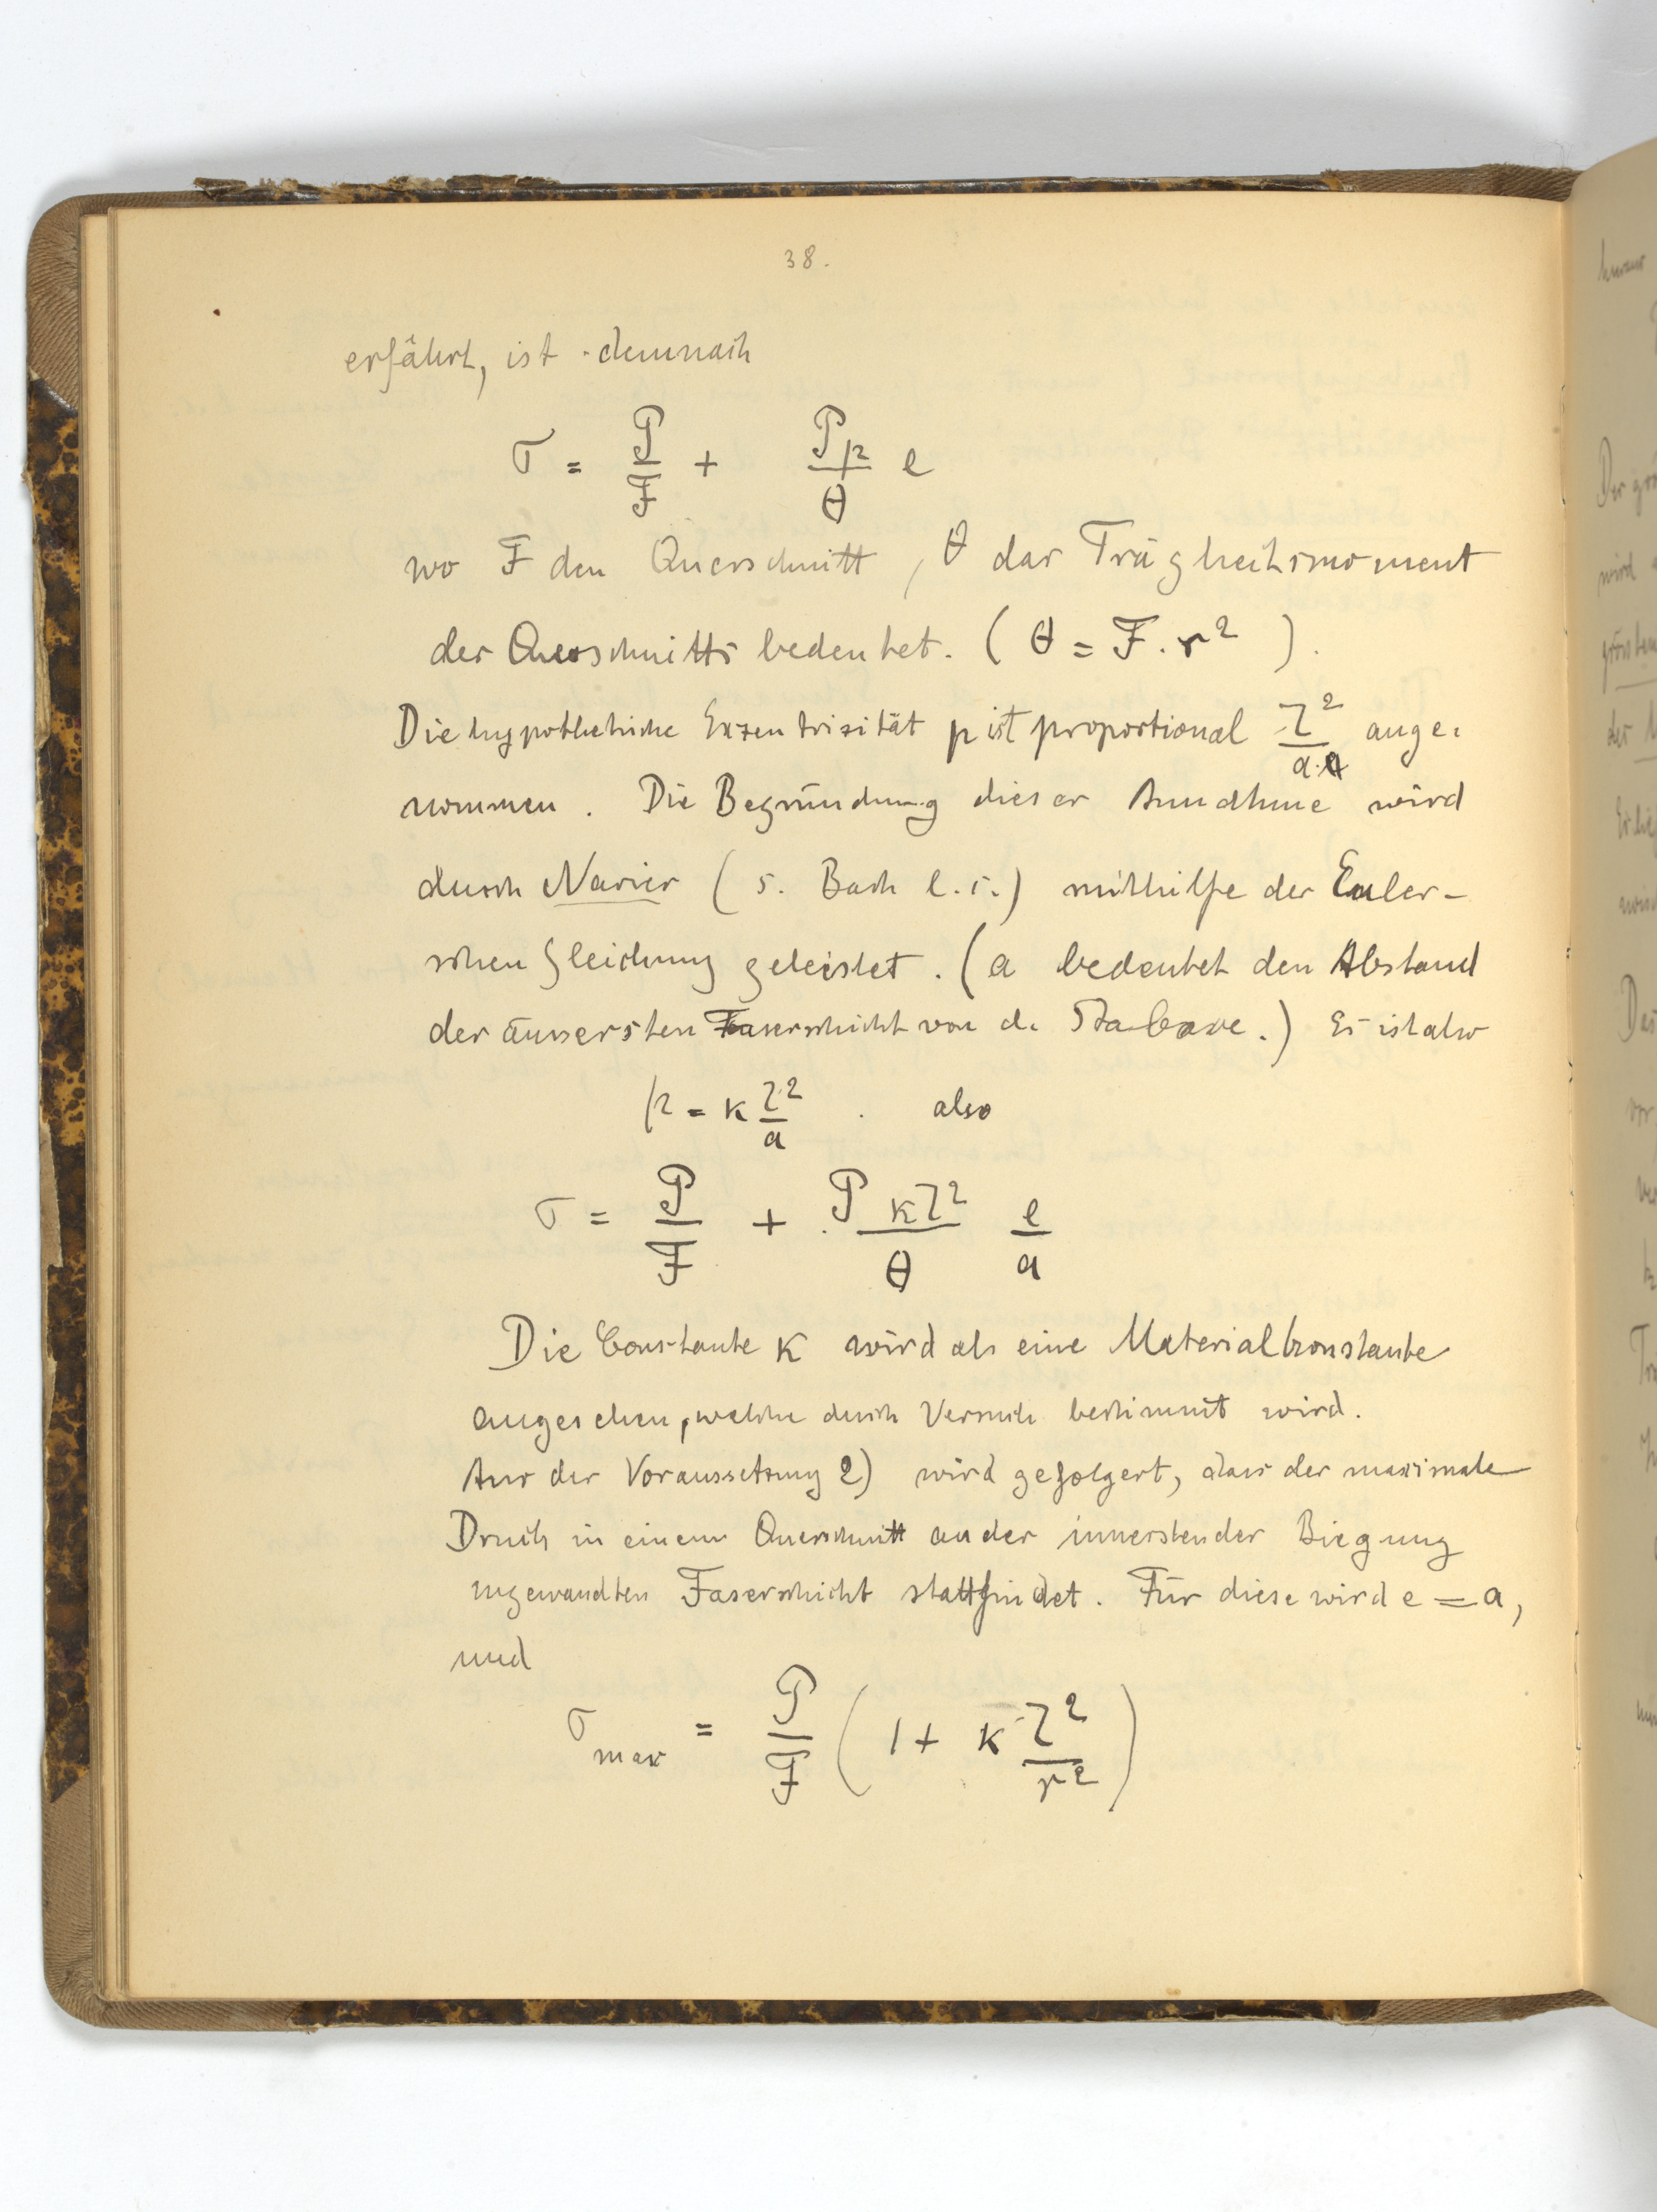 38.
erfährt, ist demnach
σ = P/F + Pp/θ e
wo F den Querschnitt, θ das Trägheitsmoment
des Querschnitts bedeutet. (θ = F.r²).
Die hypothetische Exzentrizität p ist proportional l²/a ange-
nommen. Die Begründung dieser Annahme wird
durch Navier (s. Bach l.c.) mithilfe der Euler-
schen Gleichung geleistet. (a bedeutet den Abstand
der äussersten Faserschicht von d. Stabaxe.) Es ist also
p = κ l²/a . also
σ = P/F + P κl²/θ e/a
Die Constante κ wird als eine Materialkonstante
angesehen, welche durch Versuch bestimmt wird.
Aus der Voraussetzung 2) wird gefolgert, dass der maximale
Druck in einem Querschnitt an der innersten der Biegung
zugewandten Faserschicht stattfindet. Für diese wird e = a,
und
σmax = P/F (1 + κ l²/r²)